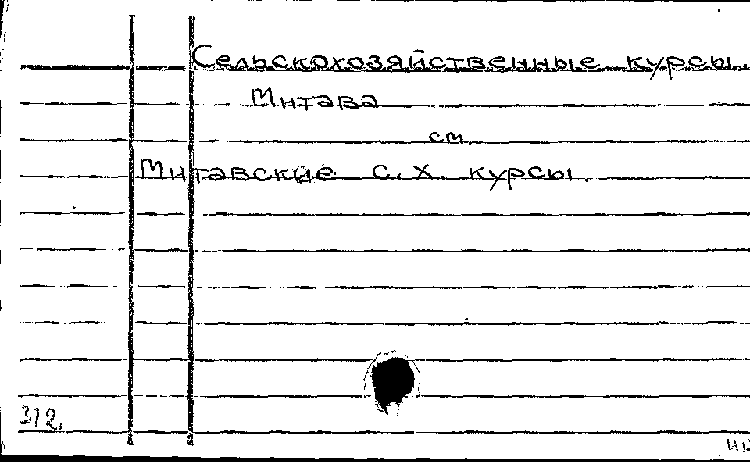 Сельскохозяйственные курсы.
Митава
см.
Митавские с.х. курсы.
312.